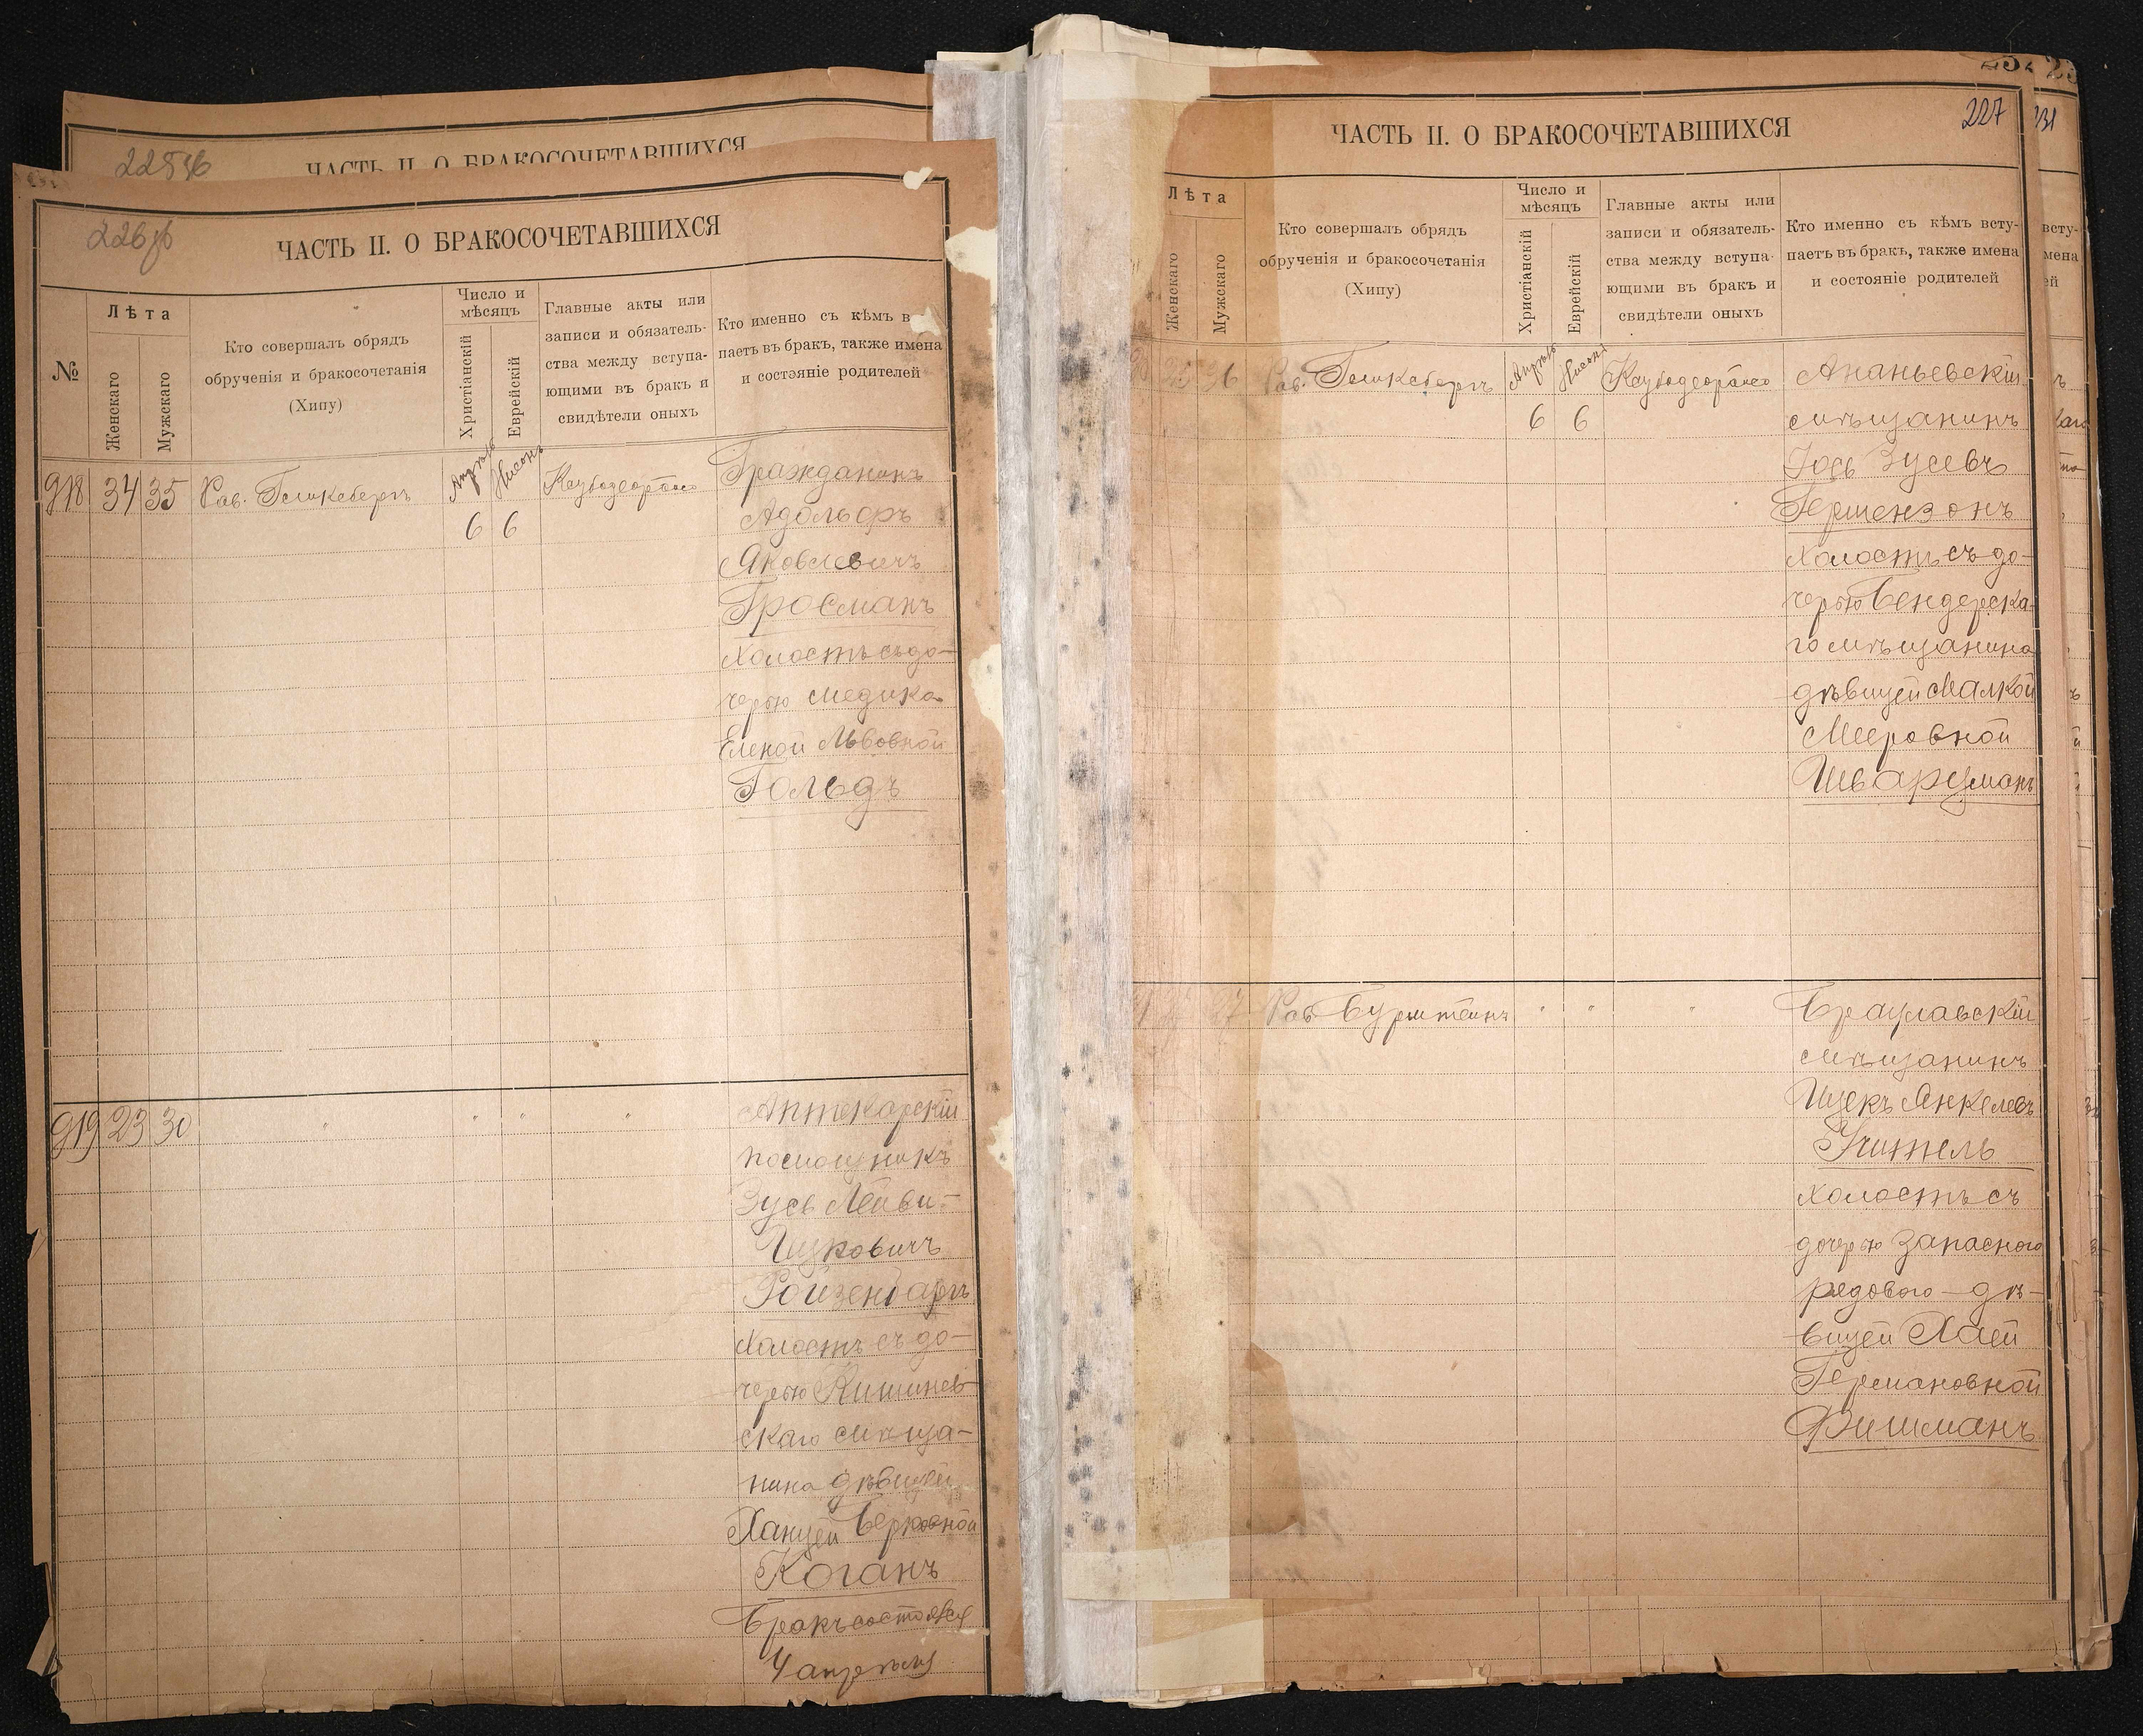 225об
ЧАСТЬ II. О БРАКОСОЧЕТАВШИХСЯ
226об
ЧАСТЬ II. О БРАКОСОЧЕТАВШИХСЯ
№
Лѣта
Женскаго
Мужскаго
Кто совершалъ обрядъ
обрученія и бракосочетанія
(Хипу)
Число и
мѣсяцъ
Христіанскій
Еврейскій
Главные акты или
записи и обязатель-
ства между вступа-
ющими въ бракъ и
свидѣтели оныхъ
Кто именно съ кѣмъ в
паетъ въ бракъ, также имена
и состояніе родителей
918 34 35 Рав. Апрѣль Нисонъ
6 6
Гражданинъ
Адольфъ
Яковлевичъ
Гросманъ
холостъ съ до-
черью медика
Еленой Львовной
Гольдъ
919 23 30 " " " "
Аптекарскій
помощникъ
Зусь Лейви-
Ицковичъ
Ройзенбаргъ
холостъ съ до-
черью Кишинев-
скаго мѣща-
нина дѣвицей
Ханцей Берковной
Коганъ
Бракъ состоялся
4 апрѣля
227
ЧАСТЬ II. О БРАКОСОЧЕТАВШИХСЯ
Лѣта
Женскаго
Мужскаго
Кто совершалъ обрядъ
обрученія и бракосочетанія
(Хипу)
Число и
мѣсяцъ
Христіанскій
Еврейскій
Главные акты или
записи и обязатель-
ства между вступа-
ющими въ бракъ и
свидѣтели оныхъ
Кто именно съ кѣмъ всту-
паетъ въ бракъ, также имена
и состояніе родителей
26 Рав. Апрѣль Нисонъ
6 6
Ананьевскій
мѣщанинъ
Іось Зусевъ
Гершензонъ
холостъ съ до-
черью Бендерска-
го мѣщанина
дѣвицей Малкой
Мееровной
Шварцманъ
27 Рав. Бурштейнъ " " "
Брацлавскій
мѣщанинъ
Ицекъ Янкелевъ
Учитель
холостъ съ
дочерью запасного
рядового дѣ-
вицей Хаей
Германовной
Фишманъ
231
всту-
мена
ей